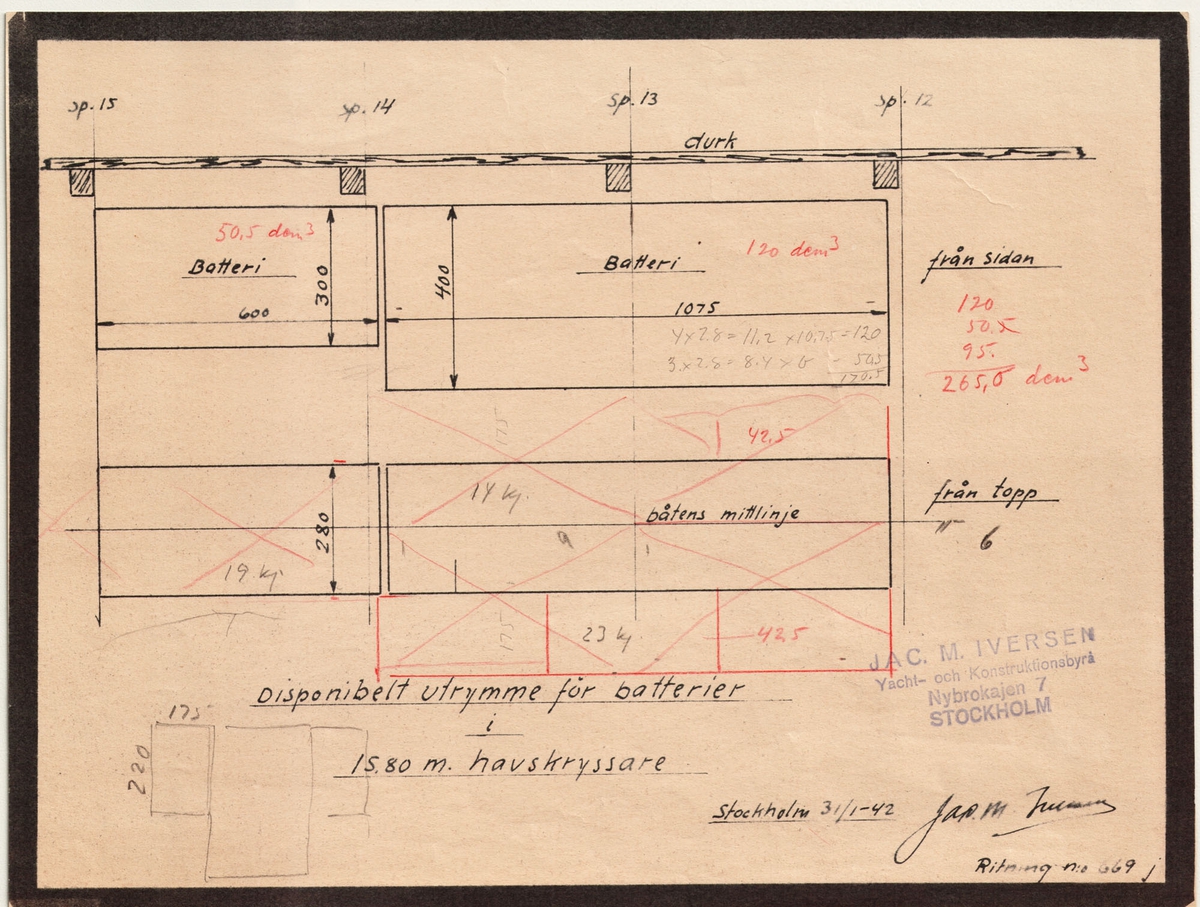 sp. 15
sp. 14
sp. 13
sp. 12
durk
50,5 dem³
Batteri
300
600
400
Batteri
120 dem³
1075
4 x 2.8 = 11,2 x 10,75 = 120
3 x 2.8 = 8.4 x 6 - 50.5
170.5
från sidan
120
50.5
95.
265,0 dem³
175
42,5
280
14 kg.
båtens mittlinje
från topp
6
9
19 kg.
175
23 kg
42,5
JAC. M. IVERSEN
Yacht- och Konstruktionsbyrå
Nybrokajen 7
STOCKHOLM
Disponibelt utrymme för batterier
i
15.80 m. havskryssare
175
220
Stockholm 31/1-42
Jac. M. Iversen
Ritning n:o 669 j